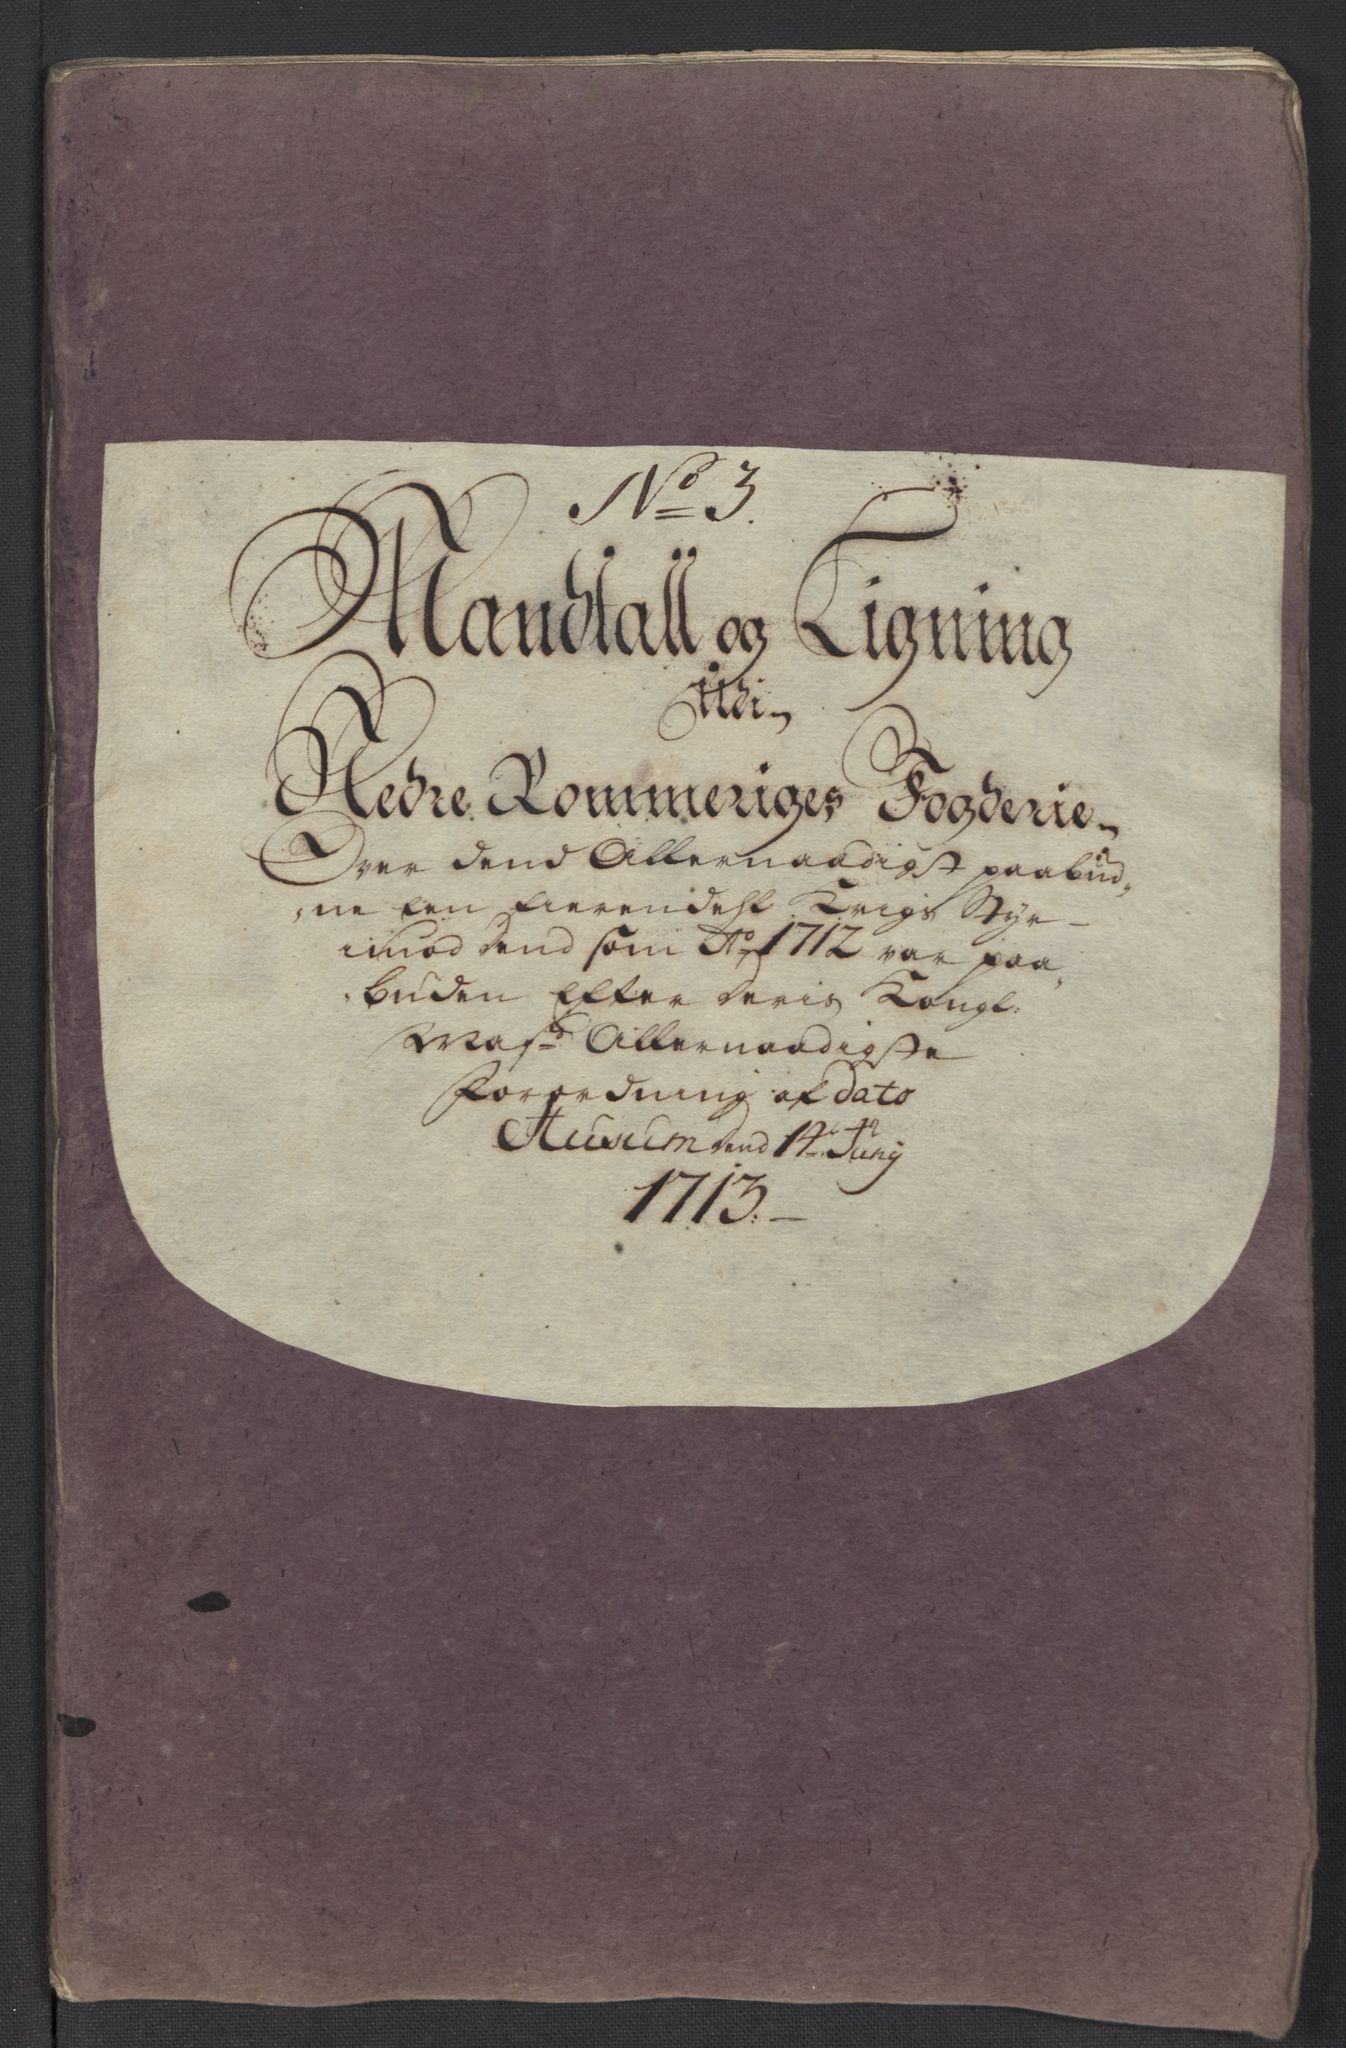 No 3.
Mandtall og Ligning
Udi
Nedre Rommeriges Fogderie
Over dend Allernaadigst paabud„
„ne een fierendehl Krigs Styr
imod dend som Ao 1712 var paa„
„buden Efter deris Kongl:
Mayts Allernaadigste
Forordning af Dato
Husum dend 14 Juny
1713.